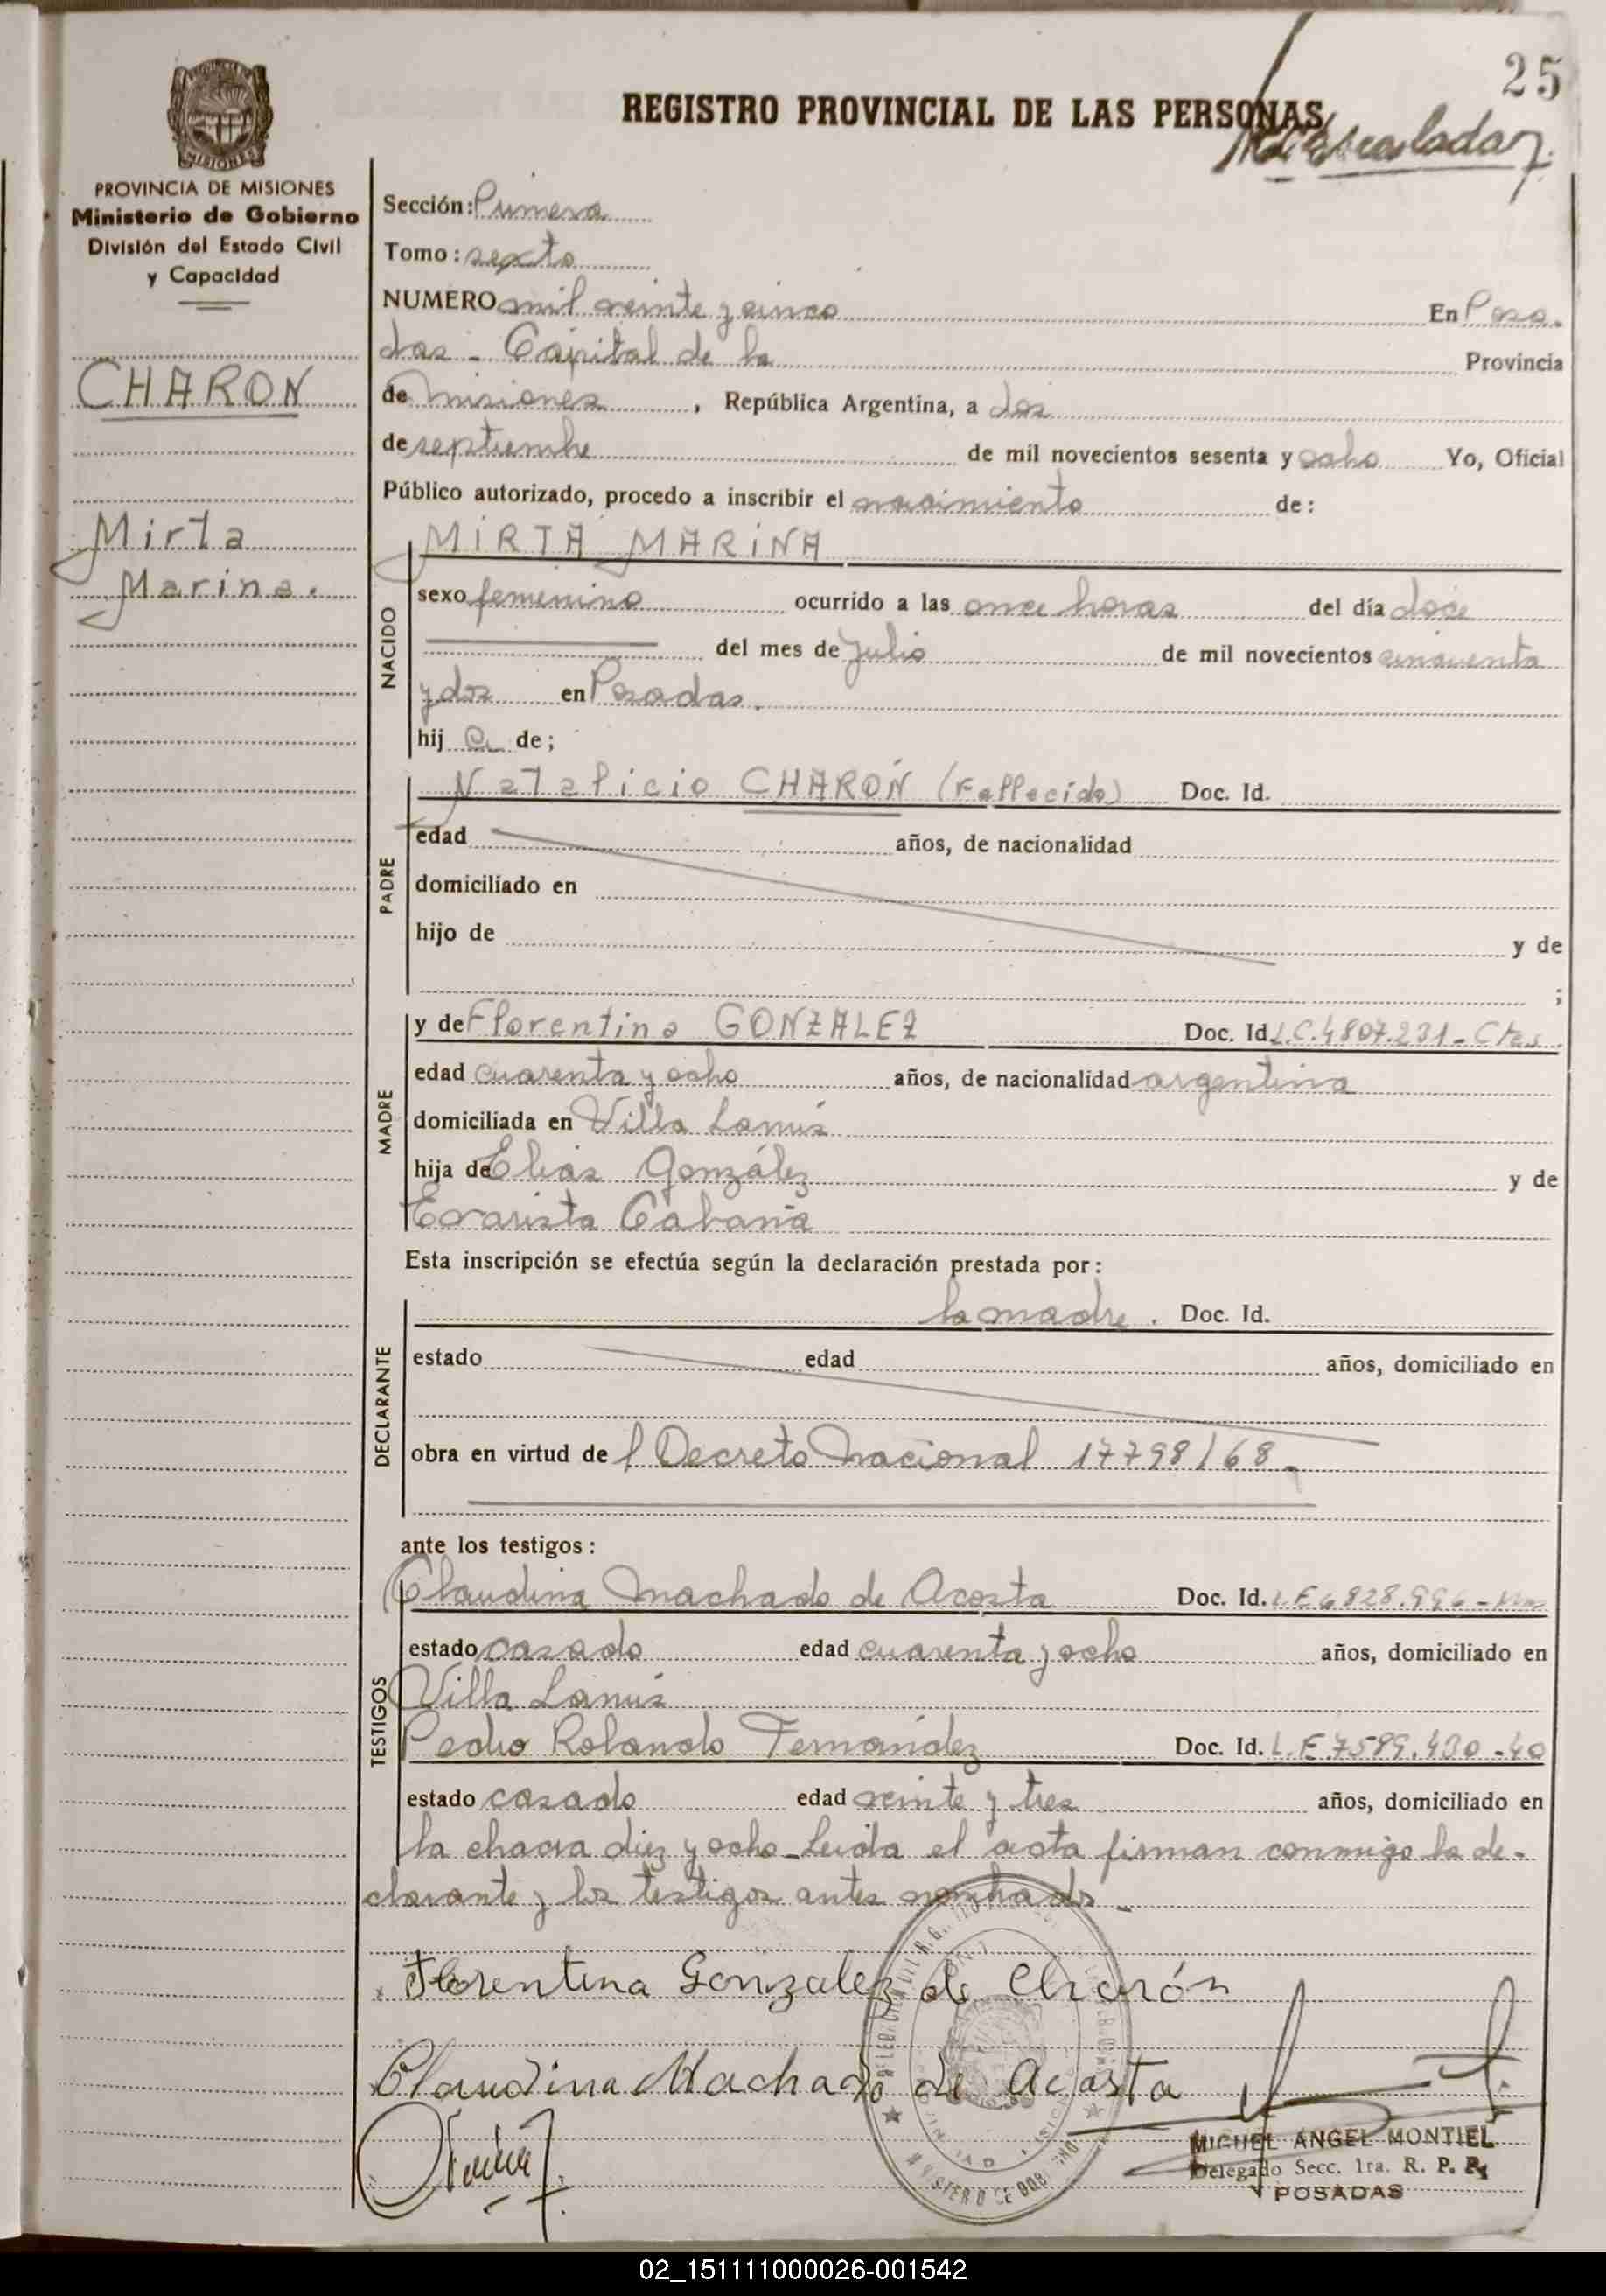 25
REGISTRO PROVINCIAL DE LAS PERSONAS
PROVINCIA DE MISIONES
Ministerio de Gobierno
División del Estado Civil
y Capacidad
CHARON
Mirta
Marina.
Sección: Primera
Tomo: sexto
NUMERO mil veinte y cinco En Posa-
das - Capital de la Provincia
de Misiones, República Argentina, a dos
de septiembre de mil novecientos sesenta y ocho Yo, Oficial
Público autorizado, procedo a inscribir el nacimiento de:
NACIDO
MIRTA MARINA
sexo femenino ocurrido a las once horas del día doce
del mes de Julio de mil novecientos cincuenta
y dos en Posadas.
hij a de;
PADRE
Natalicio CHARON (Fallecido) Doc. Id.
edad años, de nacionalidad
domiciliado en
hijo de y de
;
MADRE
y de Florentina GONZALEZ Doc. Id. L.C. 4807.231 - Ctes.
edad cuarenta y ocho años, de nacionalidad argentina
domiciliada en Villa Lanús
hija de Elias González y de
Evarista Cabaña
Esta inscripción se efectúa según la declaración prestada por:
DECLARANTE
la madre. Doc. Id.
estado edad años, domiciliado en
obra en virtud de l Decreto Nacional 17798/68.
ante los testigos:
TESTIGOS
Claudina Machado de Acosta Doc. Id. L.E 6.828.996 -
estado casado edad cuarenta y ocho años, domiciliado en
Villa Lanús
Pedro Rolando Fernández Doc. Id. L.E. 7589.430 - 40
estado casado edad veinte y tres años, domiciliado en
la chacra diez y ocho - Leida el acta firman conmigo la de-
clarante y los testigos antes nombrados.
Florentina Gonzalez de Charón
Claudina Machado de Acosta
MIGUEL ANGEL MONTIEL
Delegado Secc. 1ra. R. P. P.
POSADAS
02_151111000026-001542